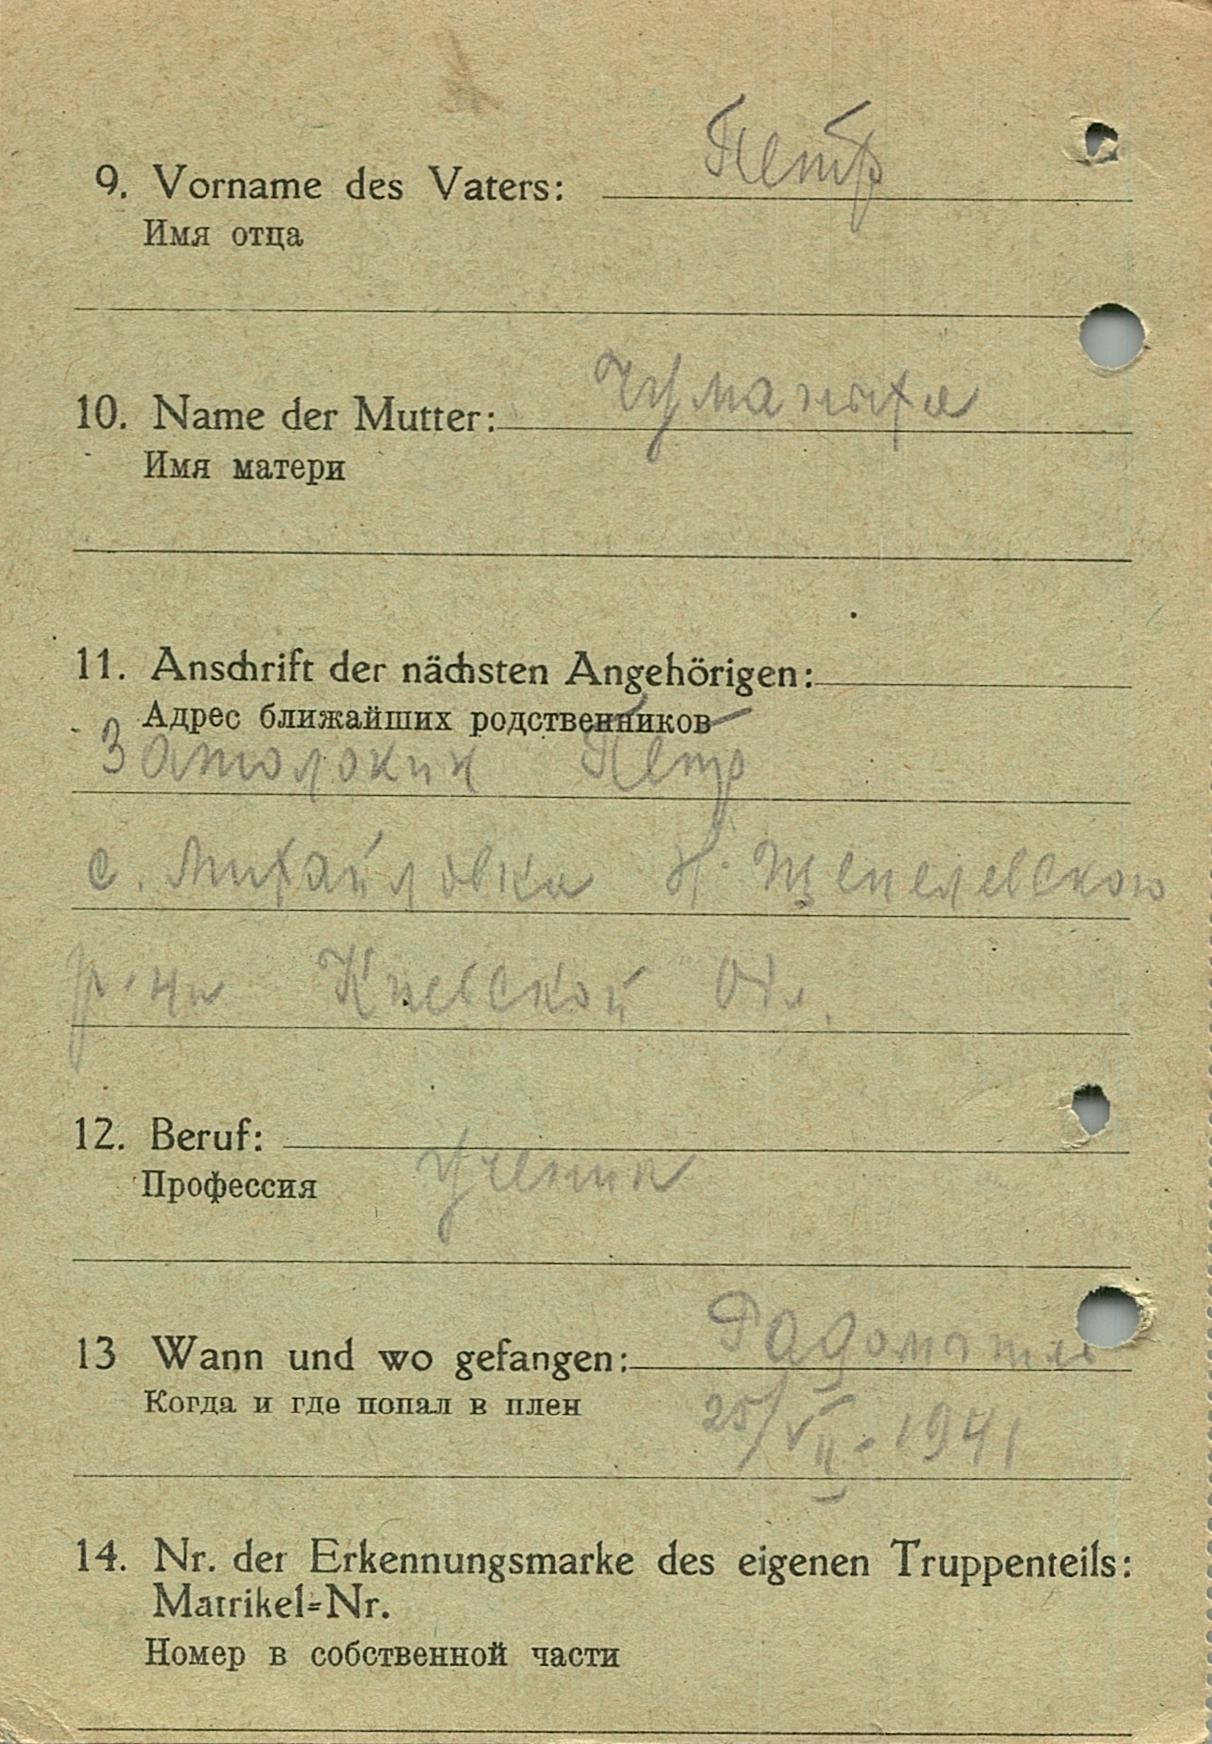 9. Vorname des Vaters: Петр
Имя отца
10. Name der Mutter:
Имя матери
11. Anschrift der nächsten Angehörigen:
Адрес ближайших родственников
Затолокин Петр
с. Михайловка Н. Щепелевского
р-на Киевской Обл.
12. Beruf:
Профессия
13 Wann und wo gefangen:
Когда и где попал в плен
25/VII. 1941
14. Nr. der Erkennungsmarke des eigenen Truppenteils:
Matrikel-Nr.
Номер в собственной части